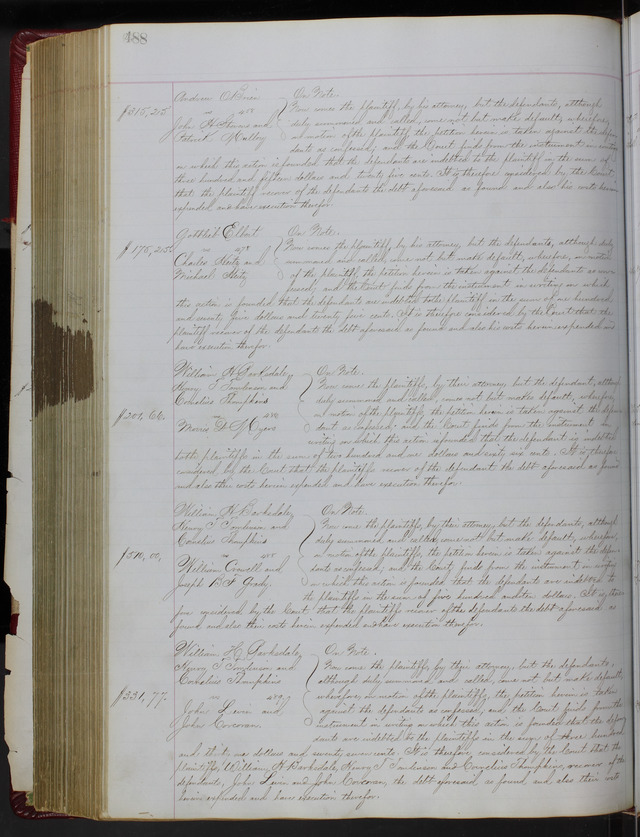 488
Andrew O'Brien On Note.
$315,25. vs Now comes the plaintiff, by his attorney, but the defendants, although
John H. and duly summoned and called, come not but make default, wherefore,
Patrick Malloy on motion of the plaintiff the petition herein is taken against the defen
dants as confessed; and the Court finds from the instrument in writing
on which this action is founded that the defendants are indebted to the plaintiff in the sum of
three hundred and fifteen dollars and twenty five cents. It is therefore considered by the Court
that the plaintiff recover of the defendants the debt aforesaid as found and also his costs herein
expended and have execution therefor.
Gottlieb On Note.
$175,25. vs Now comes the plaintiff, by his attorney, but the defendants, although duly
Charles and summoned and called, come not but make default, wherefore, on motion
Michael of the plaintiff, the petition herein is taken against the defendants as con
fessed; and the Court finds from the instrument in writing on which
this action is founded that the defendants are indebted to the plaintiff in the sum of one hundred
and seventy five dollars and twenty five cents. It is therefore considered by the Court that the
plaintiff recover of the defendants the debt aforesaid as found and also his costs herein expended and
have execution therefor.
William H. Barksdale, On Note.
Henry T. Tomlinson and Now come the plaintiffs, by their attorney but the defendant, although
Cornelius Thumpkins duly summoned and called, comes not but makes default, wherefore,
$201,66. vs on motion of the plaintiffs the petition herein is taken against the defen
Morris D. Myers dant as confessed; and the Court finds from the instrument in
writing on which this action is founded that the defendant is indebted
to the plaintiffs in the sum of two hundred and one dollars and sixty six cents. It is therefore
considered by the Court that the plaintiffs recover of the defendant the debt aforesaid as found
and also their costs herein expended and have execution therefor.
William H. Barksdale, On Note.
Henry T. Tomlinson and Now come the plaintiffs, by their attorney, but the defendants, although
Cornelius Thumpkins duly summoned and called, come not but make default, wherefore,
$510,00, vs on motion of the plaintiffs, the petition herein is taken against the defen
William Crowell and dants as confessed; and the Court finds from the instrument in writing
Joseph B. F. Grady, on which this action is founded that the defendants are indebted to
the plaintiffs in the sum of five hundred and ten dollars. It is there
fore considered by the Court that the plaintiffs recover of the defendants the debt aforesaid as
found and also their costs herein expended and have execution therefor.
William H. Barksdale, On Note.
Henry T. Tomlinson and Now come the plaintiffs, by their attorney, but the defendants,
Cornelius Thumpkins although duly summoned and called, come not but make default,
$331,77. vs wherefore, on motion of the plaintiffs, the petition herein is taken
John Levin and against the defendants as confessed; and the Court finds from the
John Corcoran. instrument in writing on which this action is founded that the defen
dants are indebted to the plaintiffs in the sum of three hundred
and thirty one dollars and seventy seven cents. It is therefore, considered by the Court that the
plaintiffs, William H. Barksdale, Henry T. Tomlinson and Cornelius Thumpkins, recover of the
defendants, John Levin and John Corcoran, the debt aforesaid as found and also their costs
herein expended and have execution therefor.